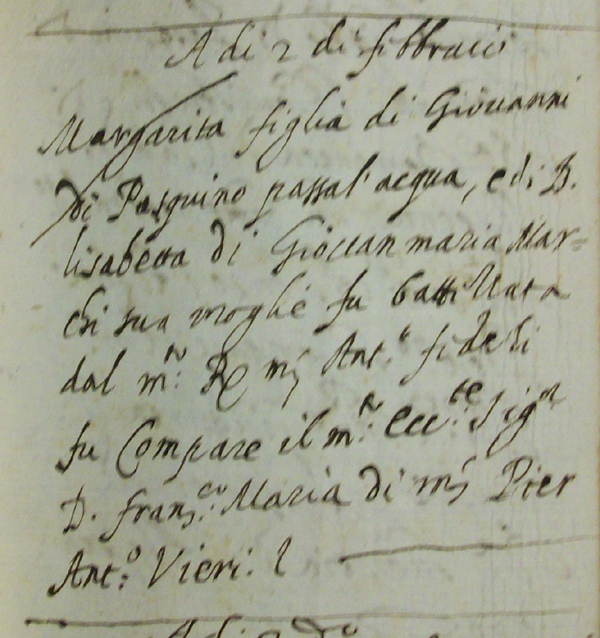 A di 2 di febbraio
Margarita figlia di Giovanni
di Pasquino passal'acqua, e di B.
lisabetta di Gioccan maria Mar=
chi sua moglie fu battizzata
dal m.to R. mſ Ant.o fideli
fu Compare il m.to ecc.te Sig.r
D. franc.co Maria di mſ Pier
Ant.o Vieri:
A di